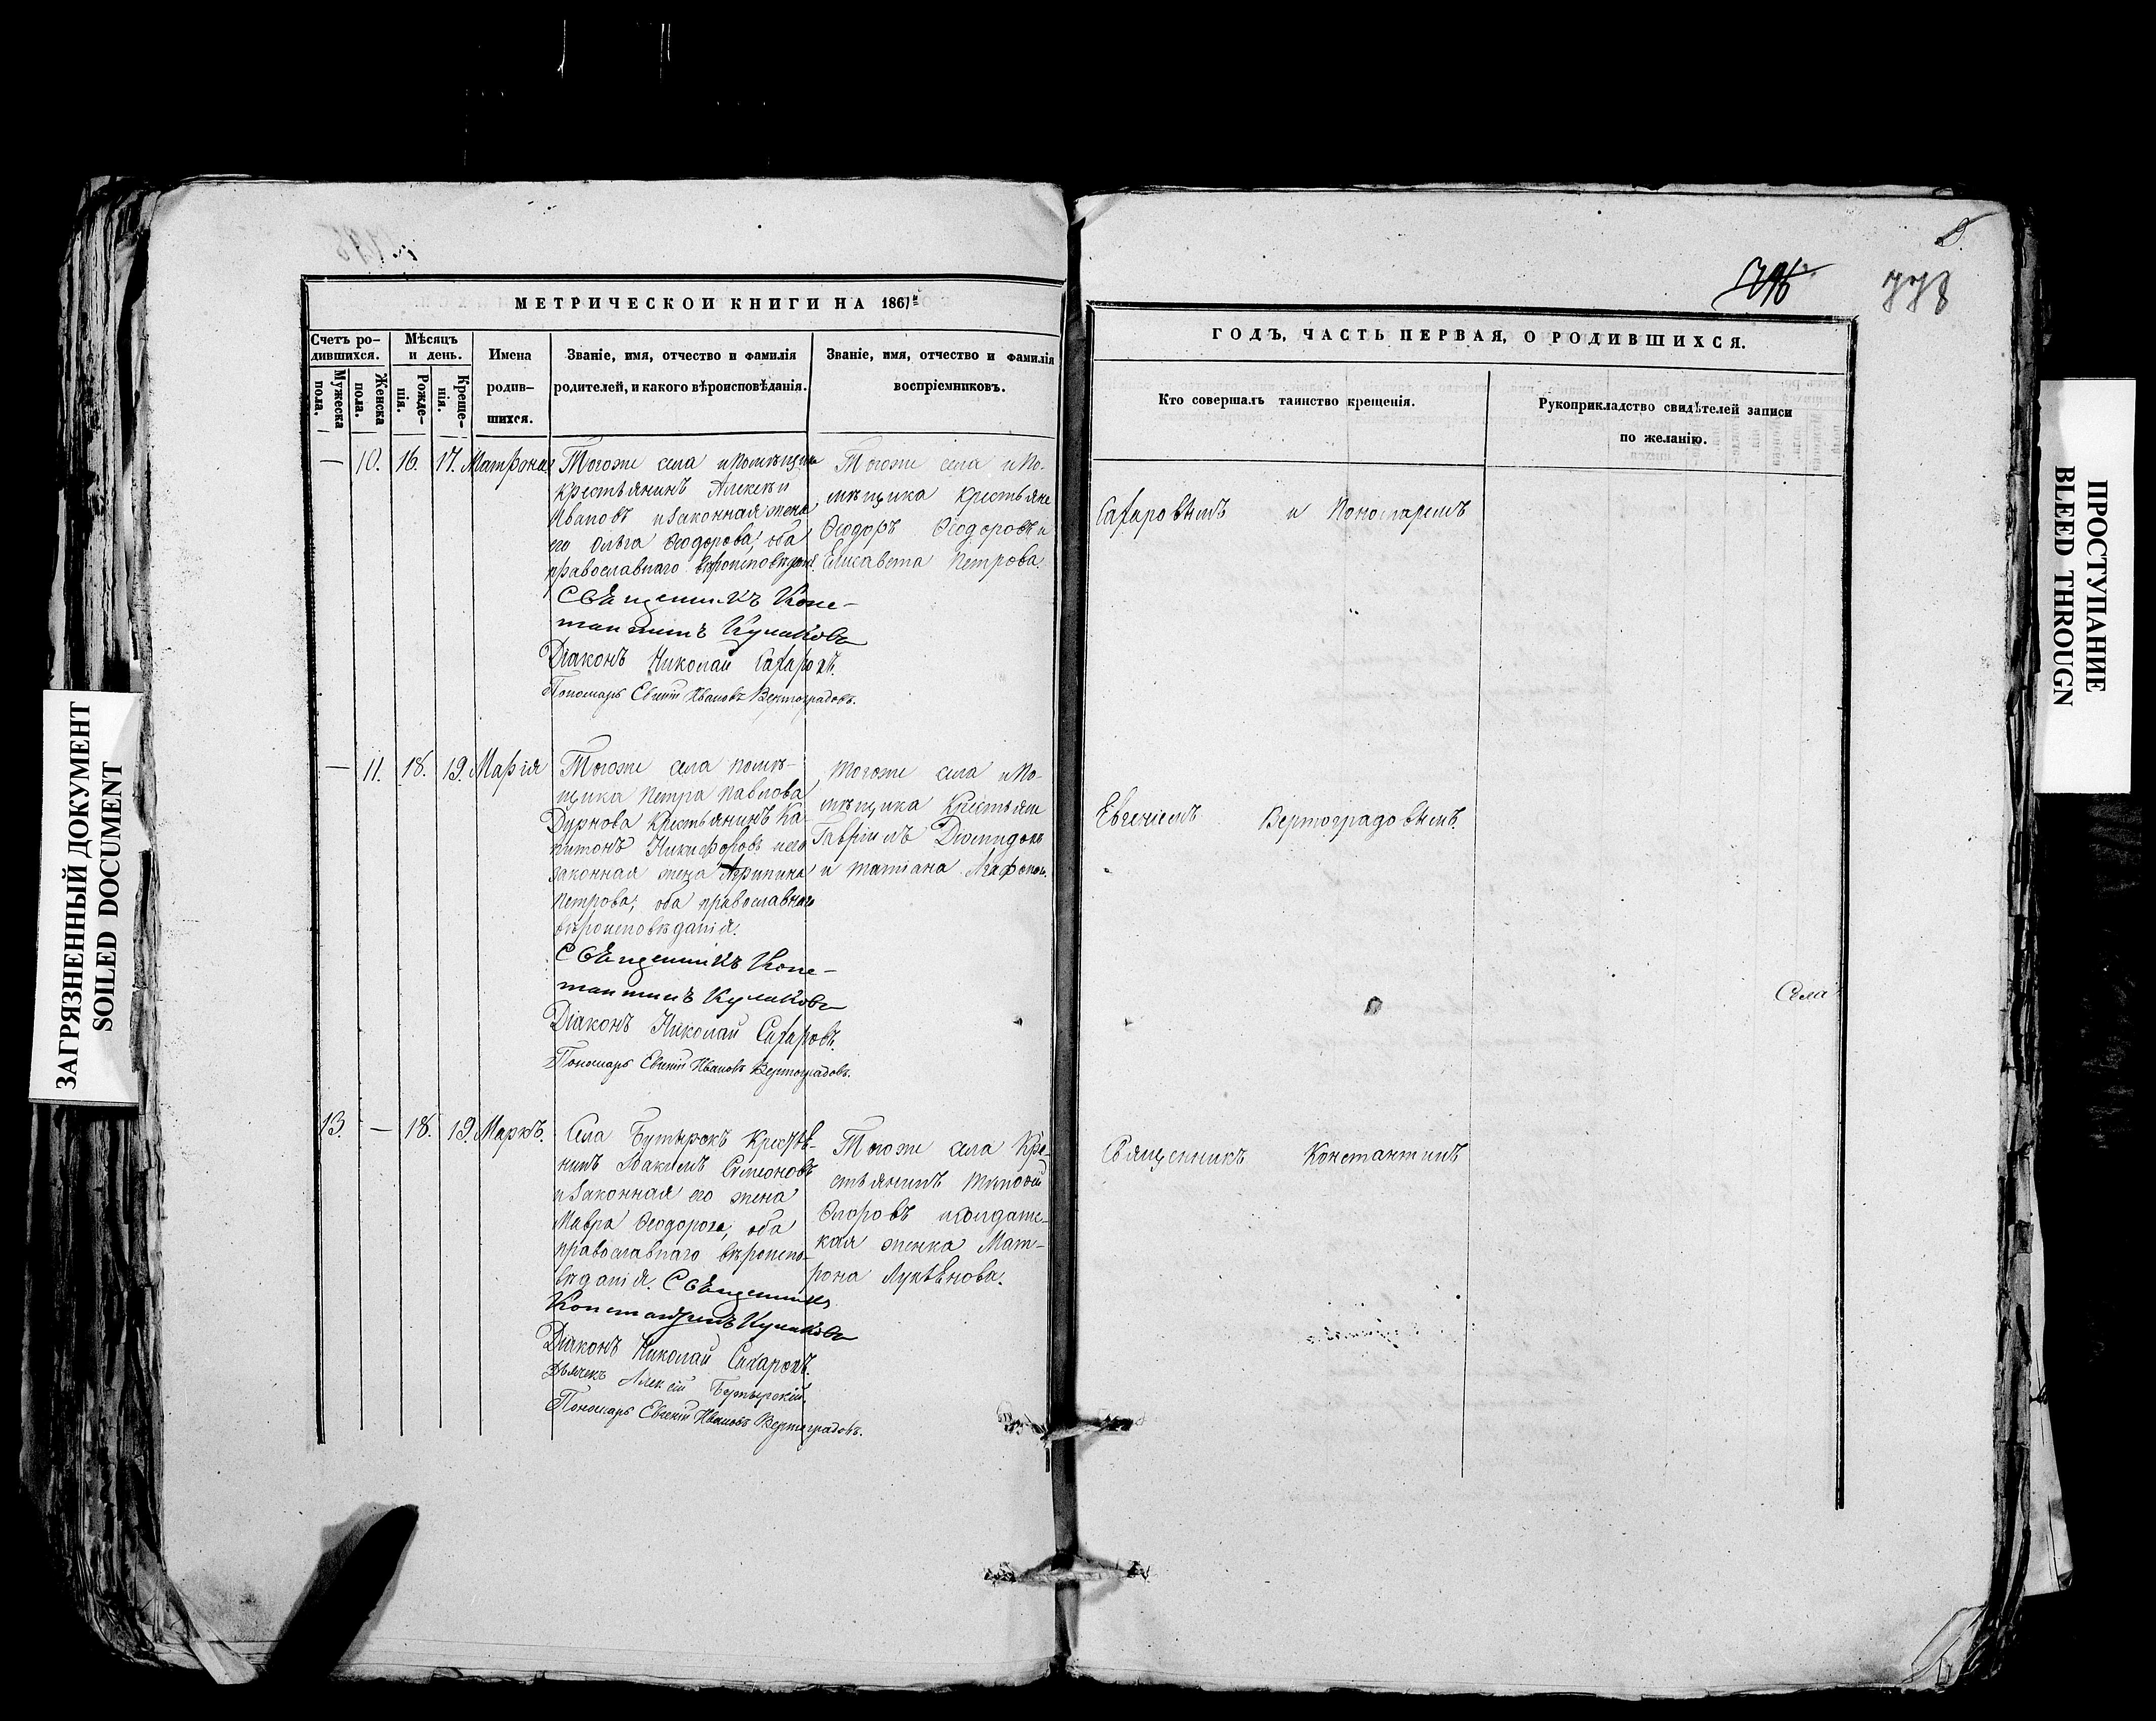 МЕТРИЧЕСКОЙ КНИГИ НА 1867й
Счетъ ро-
дившихся.
Мужеска
пола.
Женска
пола.
Мѣсяцъ
и день.
Рожде-
нія.
Креще-
нія.
Имена
родив-
шихся.
Званіе, имя, отчество и фамилія
родителей, и какого вѣроисповѣданія.
Званіе, имя, отчество и фамилія
воспріемниковъ.
— 10. 16. 17. Матрона
Тогоже села и помѣщика
крестьянинъ Алексѣй
Ивановъ и законная жена
его Ольга Ѳеодорова, оба
православнаго вѣроисповѣданія.
Священникъ Конс-
тантинъ Кулаковъ
Діаконъ Николай Сахаровъ.
Пономарь Евгеній Ивановъ Вертоградовъ.
Тогоже села и по-
мѣщика крестьяне
Ѳеодоръ Ѳеодоровъ и
Елисавета Петрова.
— 11. 18. 19. Марія
Тогоже села помѣ-
щика Петра Павлова
Дурнова крестьянинъ Ка-
питонъ Никифоровъ и его
законная жена Агрипина
Петрова, оба православнаго
вѣроисповѣданія.
Священникъ Конс-
тантинъ Кулаковъ
Діаконъ Николай Сахаровъ.
Пономарь Евгеній Ивановъ Вертоградовъ.
Тогоже села и по-
мѣщика крестьяне
Гавріилъ Діомидовъ
и Татіана Агафонов.
13. — 18. 19. Маркъ.
Села Бутырокъ крестья-
нинъ Іоакимъ Симеоновъ
и законная его жена
Мавра Ѳеодорова, оба
православнаго вѣроиспо-
вѣданія. Священникъ
Константинъ Кулаковъ
Діаконъ Николай Сахаровъ.
Дьячекъ Алексій Бутырскій.
Пономарь Евгеній Ивановъ Вертоградовъ.
Тогоже села кре-
стьянинъ Тимоѳей
и солдатс-
кая женка Мат-
рона Лукьянова.
778
ГОДЪ, ЧАСТЬ ПЕРВАЯ, О РОДИВШИХСЯ.
Кто совершалъ таинство крещенія.
Рукоприкладство свидѣтелей записи
по желанію.
Сахаровымъ и Пономаремъ
Евгеніемъ Вертоградовымъ.
Села
Священникъ Константинъ
ЗАГРЯЗНЕННЫЙ ДОКУМЕНТ
SOILED DOCUMENT
ПРОСТУПАНИЕ
BLEED THROUGN